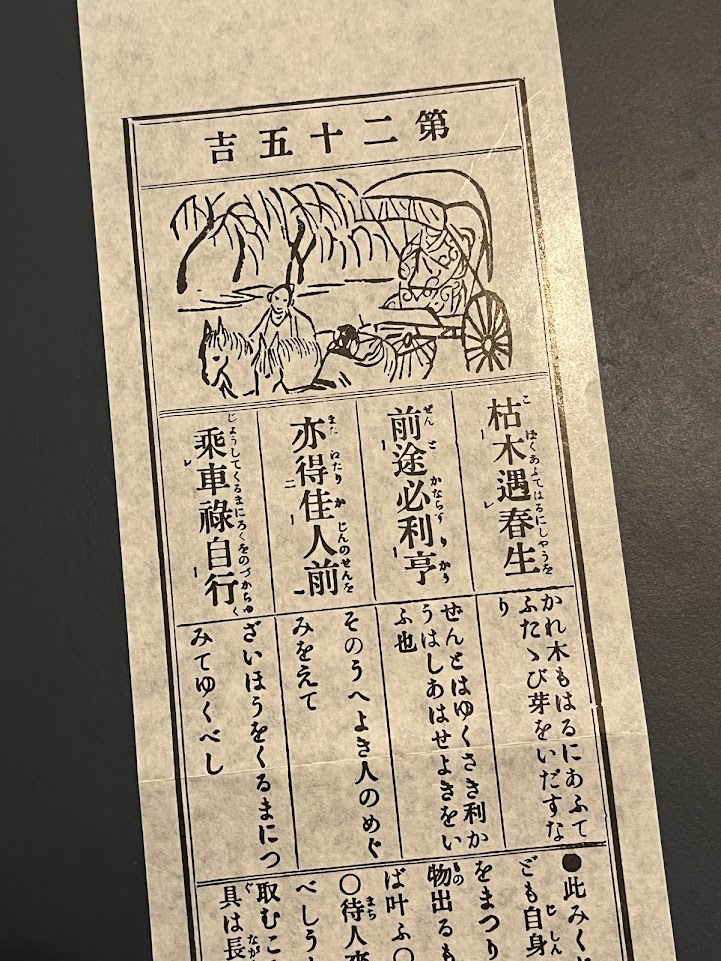 第二十五吉
枯木遇春生
前途必利亨
亦得佳人前
乗車祿自行
かれ木もはるにあふて
ふたゝび芽をいだすな
り
ぜんとはゆくさき利か
うはしあはせよきをい
ふ也
そのうへよき人のめぐ
みをえて
ざいほうをくるまにつ
みてゆくべし
●此みく
ども自身
をまつり
物出るも
ば叶ふ○
○待人
べしう
取むこ
具は長